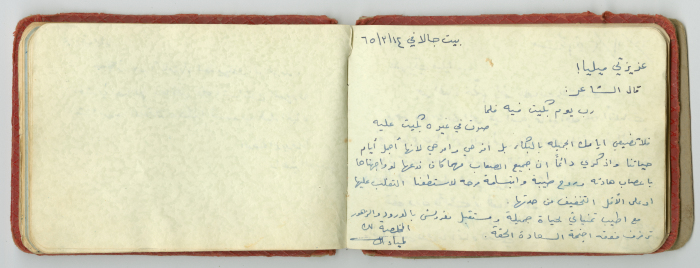 بيت جالا في ٦٥/٢/١٤
عزيزتي ميليا!
قال الشاعر:
رب يوم بكيت فيه فلما
صرت في غيره بكيت عليه
فلا تضيعي ايامك الجميلة بالبكاء بل افرحي وامرحي لأنها أجمل أيام
حياتنا واذكري دائماً ان جميع الصعاب مهما كان نوعها لو واجهناها
باعصاب هادئة وروح طيبة وابتسامة مرحة لاستطعنا التغلب عليها
او على الأقل التخفيف من حدتها.
مع اطيب تمنياتي لحياة جميلة ومستقبل مفروش بالورود والزهور
ترفرف فوقه اجنحة السعادة الحقة.
المخلصة لك